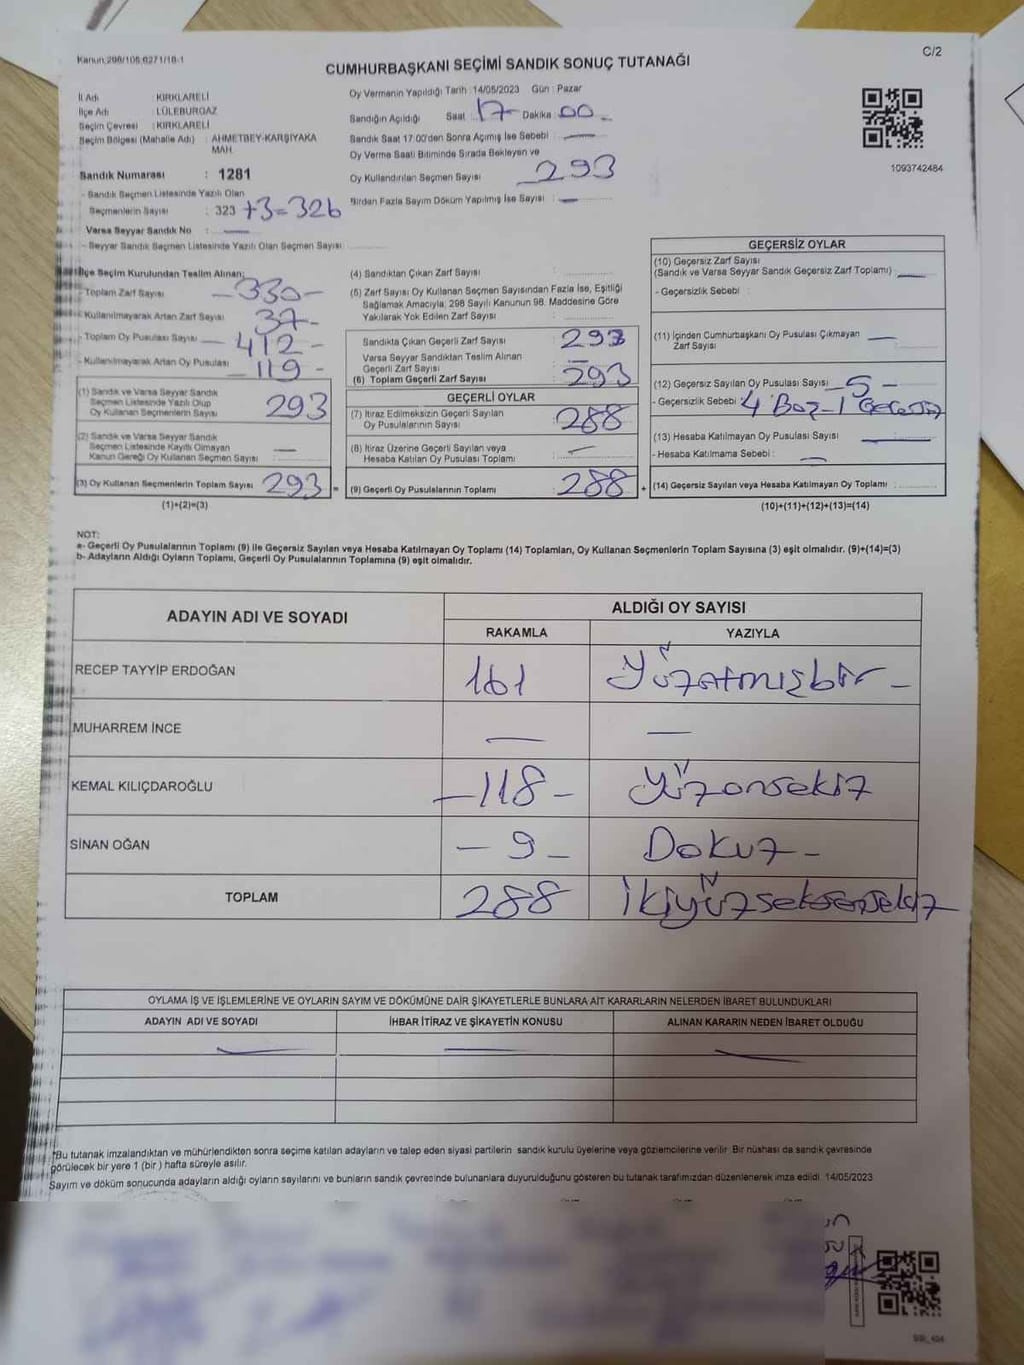 Kanun:298/105,6271/18-1
C/2
CUMHURBAŞKANI SEÇİMİ SANDIK SONUÇ TUTANAĞI
İl Adı : KIRKLARELİ
İlçe Adı : LÜLEBURGAZ
Seçim Çevresi : KIRKLARELİ
Seçim Bölgesi (Mahalle Adı) : AHMETBEY-KARŞIYAKA
MAH.
Sandık Numarası : 1281
- Sandık Seçmen Listesinde Yazılı Olan
Seçmenlerin Sayısı : 323 +3=326
Varsa Seyyar Sandık No : —
- Seyyar Sandık Seçmen Listesinde Yazılı Olan Seçmen Sayısı :
Oy Vermenin Yapıldığı Tarih :14/05/2023 Gün : Pazar
Sandığın Açıldığı Saat : 17- Dakika : 00
Sandık Saat 17:00'den Sonra Açımış İse Sebebi : —
Oy Verme Saati Bitiminde Sırada Bekleyen ve
Oy Kullandırılan Seçmen Sayısı 293
Birden Fazla Sayım Döküm Yapılmış İse Sayısı : —
1093742484
İlçe Seçim Kurulundan Teslim Alınan;
- Toplam Zarf Sayısı -330-
- Kullanılmayarak Artan Zarf Sayısı 37-
- Toplam Oy Pusulası Sayısı — 412 -
- Kullanılmayarak Artan Oy Pusulası -119 -
(1) Sandık ve Varsa Seyyar Sandık
Seçmen Listesinde Yazılı Olup
Oy Kullanan Seçmenlerin Sayısı 293
(2) Sandık ve Varsa Seyyar Sandık
Seçmen Listesinde Kayıtlı Olmayan
Kanun Gereği Oy Kullanan Seçmen Sayısı : —
(3) Oy Kullanan Seçmenlerin Toplam Sayısı 293 =
(1)+(2)=(3)
(4) Sandıktan Çıkan Zarf Sayısı :
(5) Zarf Sayısı Oy Kullanan Seçmen Sayısından Fazla İse, Eşitliği
Sağlamak Amacıyla, 298 Sayılı Kanunun 98. Maddesine Göre
Yakılarak Yok Edilen Zarf Sayısı :
Sandıkta Çıkan Geçerli Zarf Sayısı : 293
Varsa Seyyar Sandıktan Teslim Alınan
Geçerli Zarf Sayısı : —
(6) Toplam Geçerli Zarf Sayısı : 293
GEÇERLİ OYLAR
(7) İtiraz Edilmeksizin Geçerli Sayılan
Oy Pusulalarının Sayısı : 288
(8) İtiraz Üzerine Geçerli Sayılan veya
Hesaba Katılan Oy Pusulası Toplamı : —
(9) Geçerli Oy Pusulalarının Toplamı : 288 +
GEÇERSİZ OYLAR
(10) Geçersiz Zarf Sayısı
(Sandık ve Varsa Seyyar Sandık Geçersiz Zarf Toplamı) : —
- Geçersizlik Sebebi :
(11) İçinden Cumhurbaşkanı Oy Pusulası Çıkmayan
Zarf Sayısı : —
(12) Geçersiz Sayılan Oy Pusulası Sayısı -5-
- Geçersizlik Sebebi : 4 Boz-1 Geçersiz
(13) Hesaba Katılmayan Oy Pusulası Sayısı : —
- Hesaba Katılmama Sebebi : —
(14) Geçersiz Sayılan veya Hesaba Katılmayan Oy Toplamı :
(10)+(11)+(12)+(13)=(14)
NOT:
a- Geçerli Oy Pusulalarının Toplamı (9) ile Geçersiz Sayılan veya Hesaba Katılmayan Oy Toplamı (14) Toplamları, Oy Kullanan Seçmenlerin Toplam Sayısına (3) eşit olmalıdır. (9)+(14)=(3)
b- Adayların Aldığı Oyların Toplamı, Geçerli Oy Pusulalarının Toplamına (9) eşit olmalıdır.
ADAYIN ADI VE SOYADI
ALDIĞI OY SAYISI
RAKAMLA YAZIYLA
RECEP TAYYİP ERDOĞAN 161 Yüzatmışbir -
MUHARREM İNCE — —
KEMAL KILIÇDAROĞLU -118- Yüzonsekiz
SİNAN OĞAN - 9 - Dokuz -
TOPLAM 288 İkiyüzseksensekiz
OYLAMA İŞ VE İŞLEMLERİNE VE OYLARIN SAYIM VE DÖKÜMÜNE DAİR ŞİKAYETLERLE BUNLARA AİT KARARLARIN NELERDEN İBARET BULUNDUKLARI
ADAYIN ADI VE SOYADI İHBAR İTİRAZ VE ŞİKAYETİN KONUSU ALINAN KARARIN NEDEN İBARET OLDUĞU
— — —
*Bu tutanak imzalandıktan ve mühürlendikten sonra seçime katılan adayların ve talep eden siyasi partilerin sandık kurulu üyelerine veya gözlemcilerine verilir. Bir nüshası da sandık çevresinde
görülecek bir yere 1 (bir) hafta süreyle asılır.
Sayım ve döküm sonucunda adayların aldığı oyların sayılarını ve bunların sandık çevresinde bulunanlara duyurulduğunu gösteren bu tutanak tarafımızdan düzenlenerek imza edildi. 14/05/2023